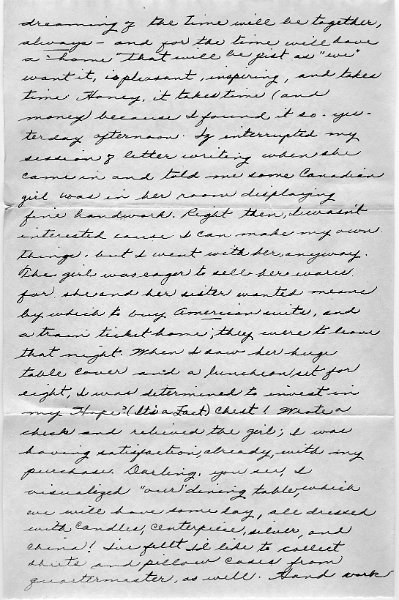 dreaming of the time will be together,
always - and for the time will have
a "home" that will be just as "we"
want it, is pleasant, inspiring, and takes
time Honey, it takes time (and
money) because I found it so. yes-
terday afternoon. Ig interrupted my
session of letter writing when she
came in and told me some Canadian
girl was in her room displaying
fine handwork. Right then, I wasn't
interested cause I can make my own
things. but I went with her, anyway.
The girl was eager to sell her wares
for she and her sister wanted means
by which to buy American suits, and
a train ticket home; they were to leave
that night. When I saw her huge
table cover and a luncheon set for
eight, I was determined to invest in
my Hope? (It's a Fact) Chest! Wrote a
check and relieved the girl; I was
having satisfaction, already, with my
purchase. Darling, you see, I
visualized "our" dining table, which
we will have some day, all dressed
with candles, centerpiece, silver, and
china! I've fellt I'd like to collect
sheets and pillow cases from
quartermaster, as well. Hand work